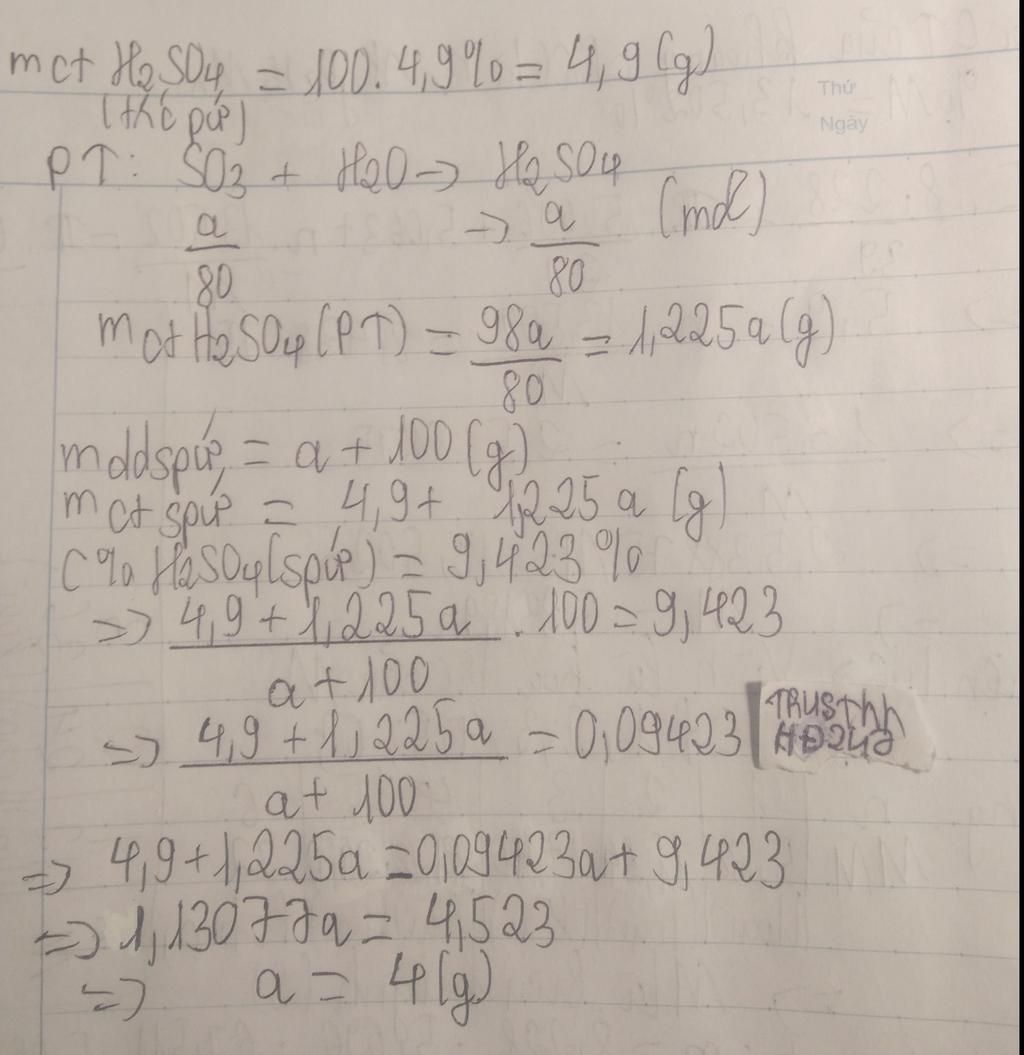 mct H2SO4 = 100. 4,9% = 4,9(g)
Thứ
Ngày
PT: SO3 + H2O → H2SO4
a/80 → a/80 (mol)
mct H2SO4(PT) = 98a/80 = 1,225a(g)
mddspứ = a + 100(g)
mct spứ = 4,9 + 1,225a (g)
C% H2SO4(spứ) = 9,423%
=> (4,9 + 1,225a)/(a + 100) . 100 = 9,423
=> (4,9 + 1,225a)/(a + 100) = 0,09423
4,9+1,225a = 0,09423a + 9,423
=> 1,13077a = 4,523
=> a = 4(g)